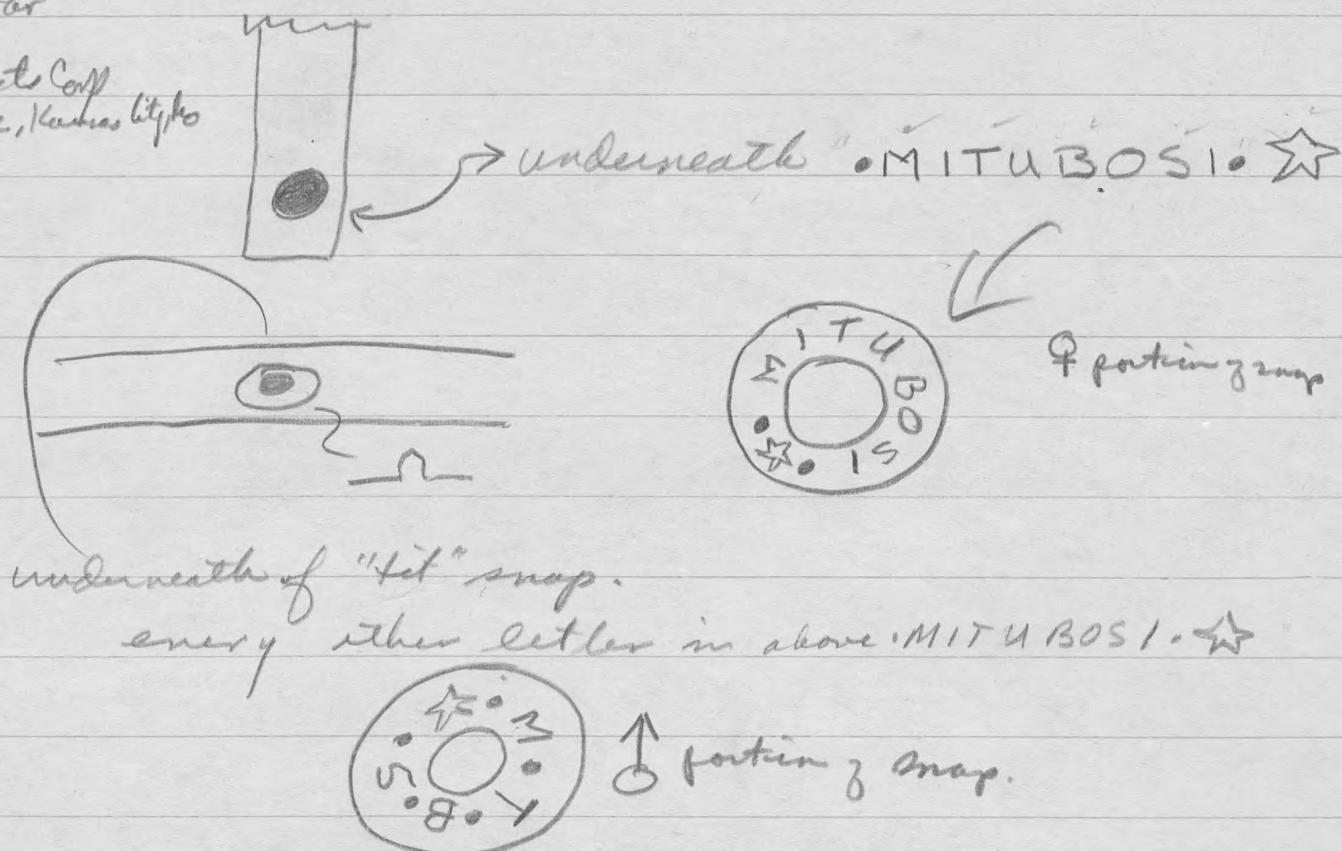 Corp
, Kansas City, Mo
underneath • MITUBOSI • ☆
• MITUBOSI • ☆
♀ portion of snap
underneath of "tit" snap.
every other letter in above • MITUBOSI • ☆
☆ • M • T • B • S •
♂ portion of snap.